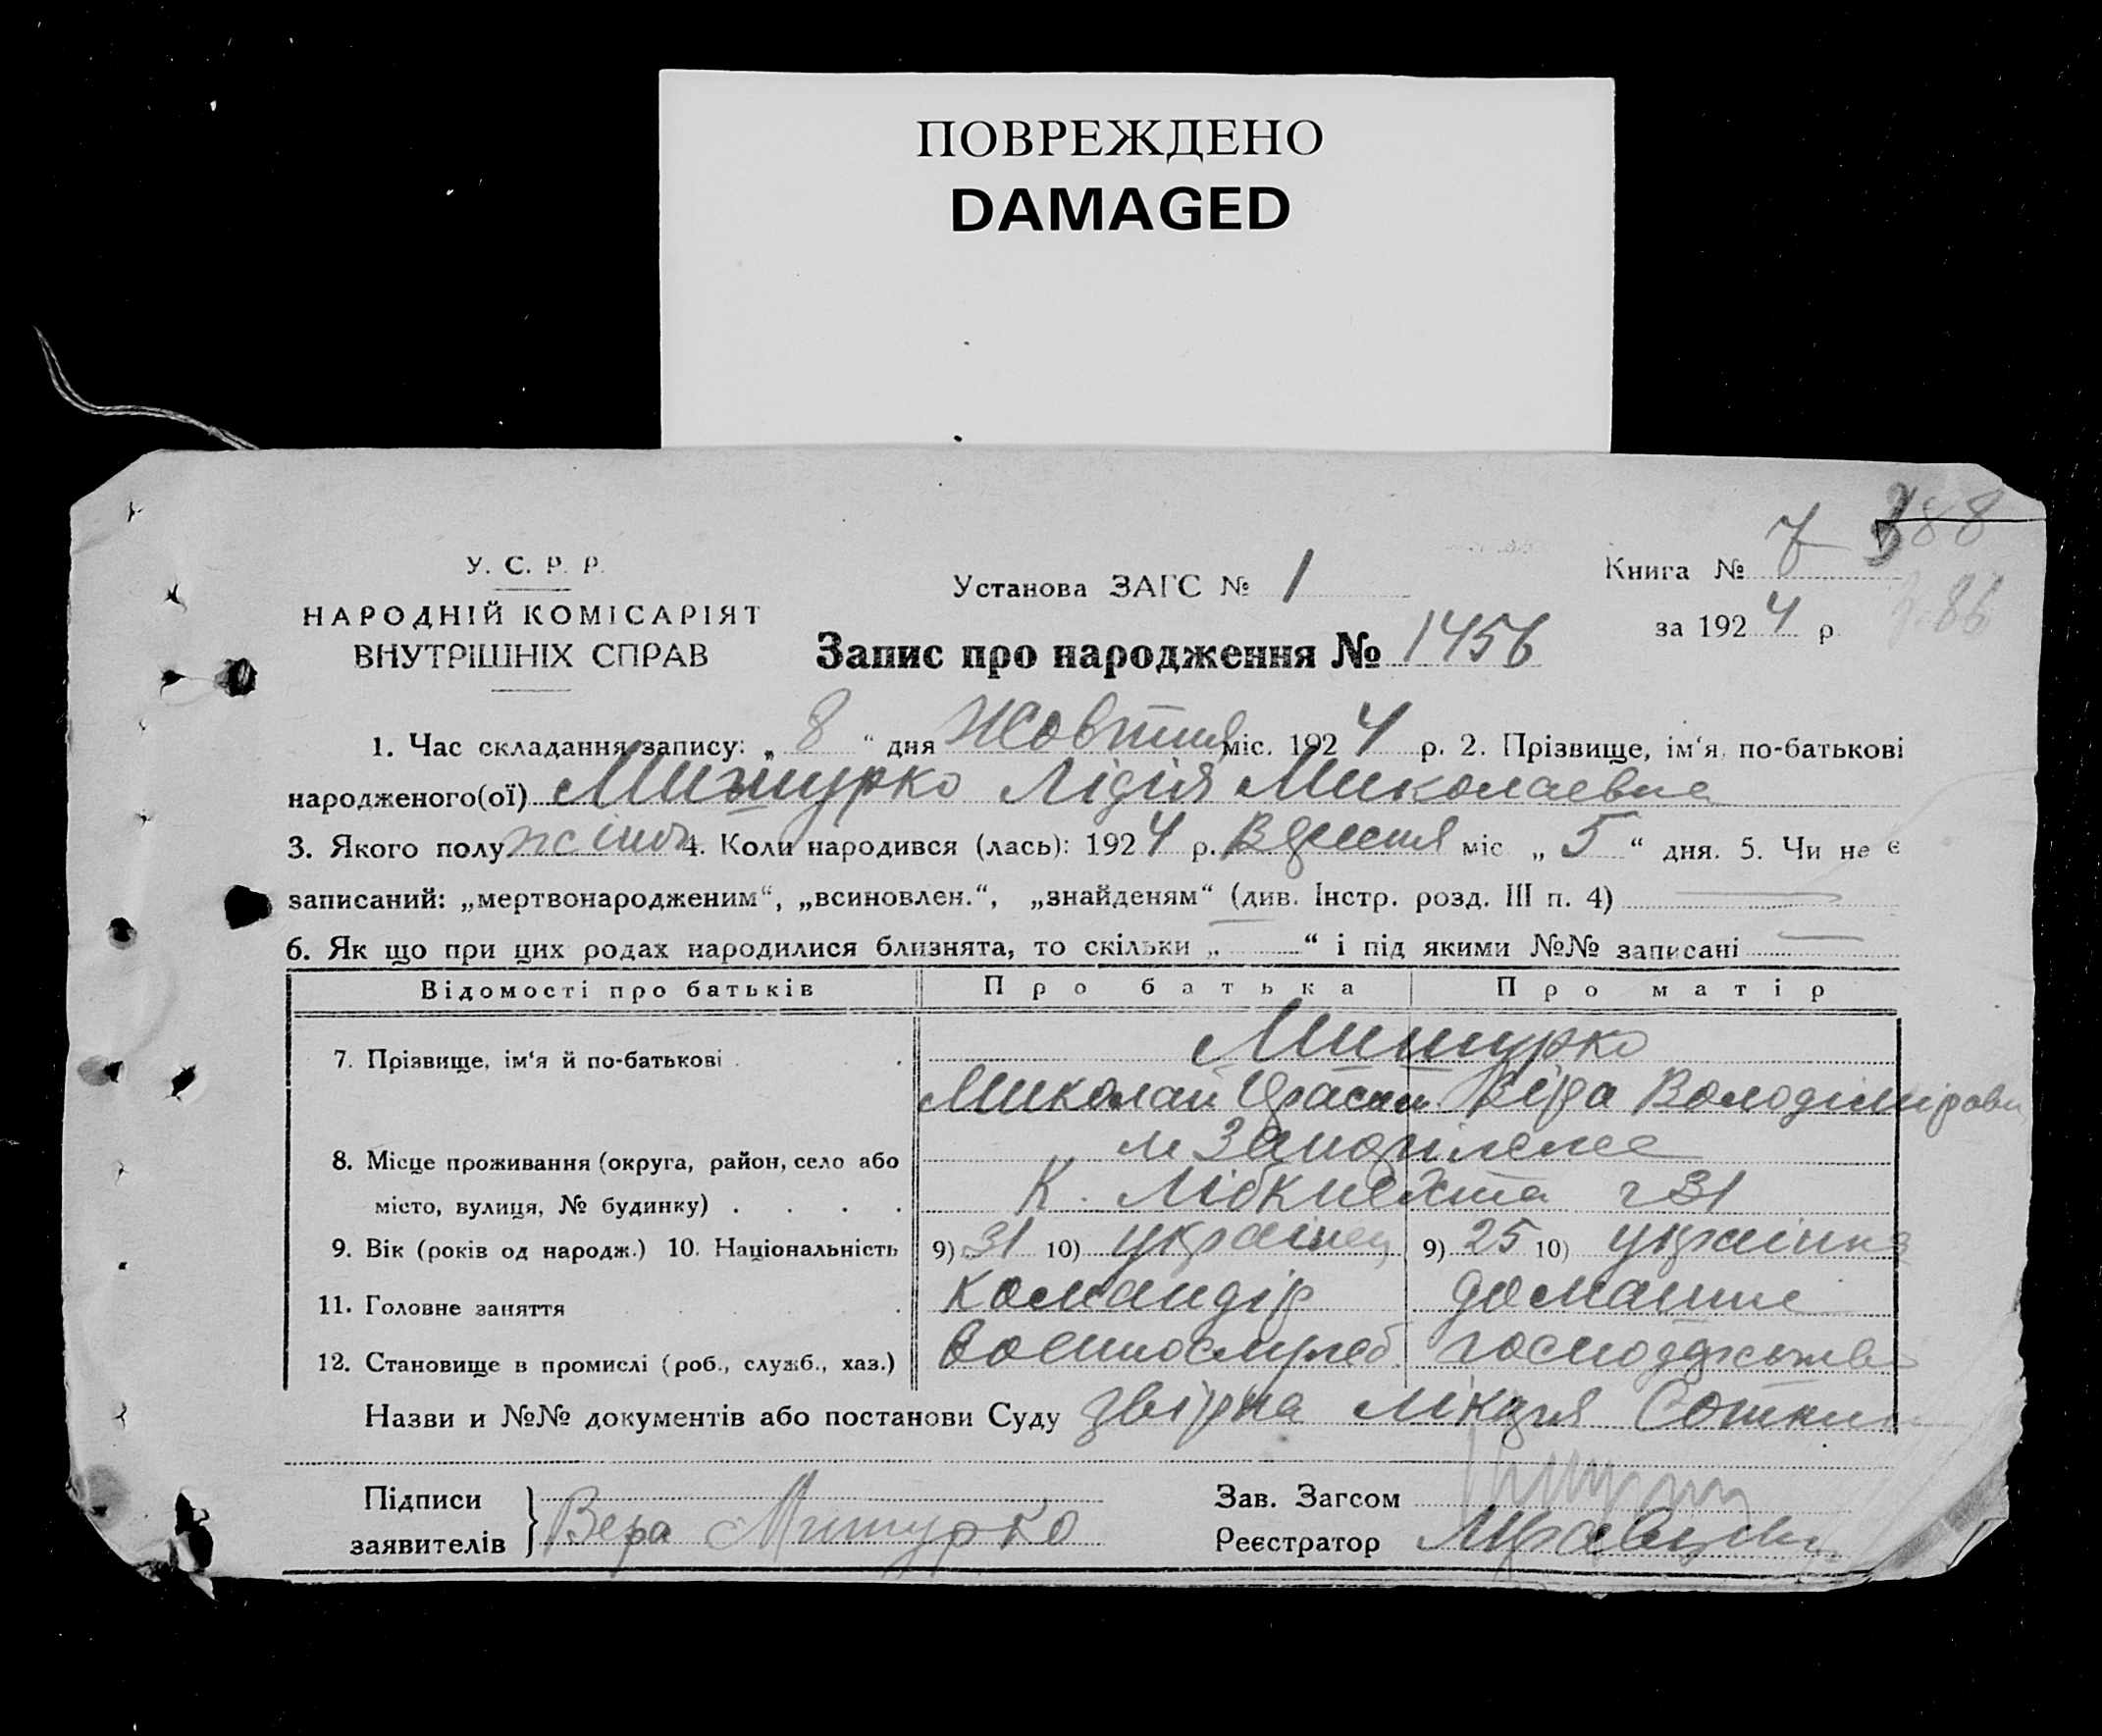 ПОВРЕЖДЕНО
DAMAGED
388
У. С. Р. Р.
Книга № 7
Установа ЗАГС № 1
НАРОДНІЙ КОМІСАРІЯТ
за 1924 р.
386
ВНУТРІШНІХ СПРАВ
Запис про народження № 1456
1. Час складання запису: „ 8 “ дня Жовтня міс. 1924 р. 2. Прізвище, ім‘я, по-батькові
народженого(ої) Мишурко Лідія Миколаевна
3. Якого полу жіноч 4. Коли народився (лась): 1924 р. Вересня міс „ 5 “ дня. 5. Чи не є
записаний: „мертвонародженим“, „всиновлен.“, „знайденям“ (див. Інстр. розд. III п. 4)
6. Як що при цих родах народилися близнята, то скільки „ “ і під якими №№ записані
Відомості про батьків Про батька Про матір
7. Прізвище, ім‘я й по-батькові Мишурко
Миколай Віра Володімірови
8. Місце проживання (округа, район, село або м Запоріжже
місто, вулиця, № будинку) К. Лібкнехта 31
9. Вік (років од народж.) 10. Національність 9) 31 10) українец 9) 25 10) українка
11. Головне заняття командір домашне
12. Становище в промислі (роб., служб., хаз.) военнослужб. господарство
Назви и №№ документів або постанови Суду
Підписи Зав. Загсом
заявителів Вера Мишурко Реєстратор